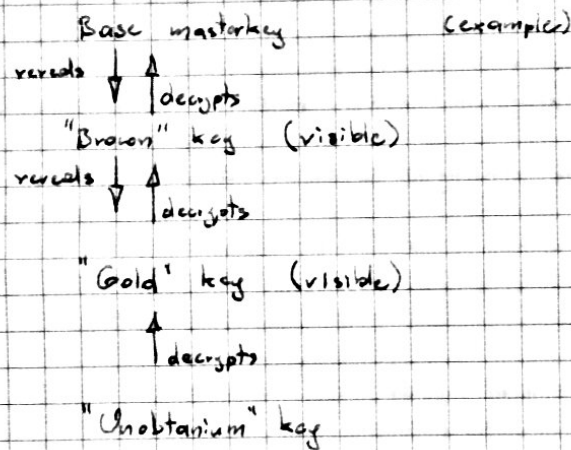 Base masterkey (example)
reveals
decrypts
"Brown" key (visible)
reveals
decrypts
"Gold" key (visible)
decrypts
"Unobtanium" key